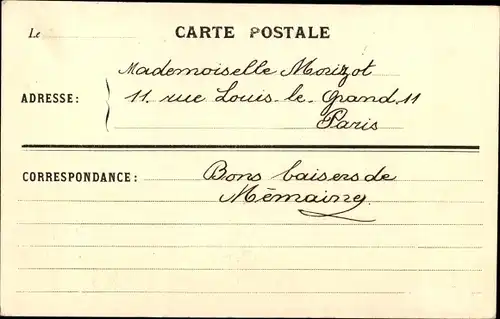 Le
CARTE POSTALE
Mademoiselle Morizot
ADRESSE : 11. rue Louis-le-Grand. 11
Paris
CORRESPONDANCE : Bons baisers de
Mémaing.